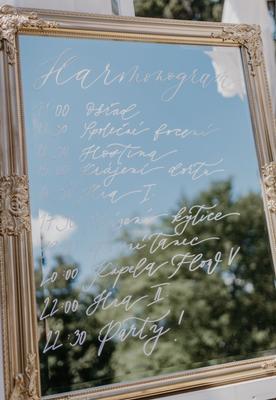 Harmonogram
11:00 Obřad
Společní focení
Hostina
Krájení dortu
Hra I.
kytice
tanec
20:00 Kapela Flow V
22:00 Hra II
22:30 Party!